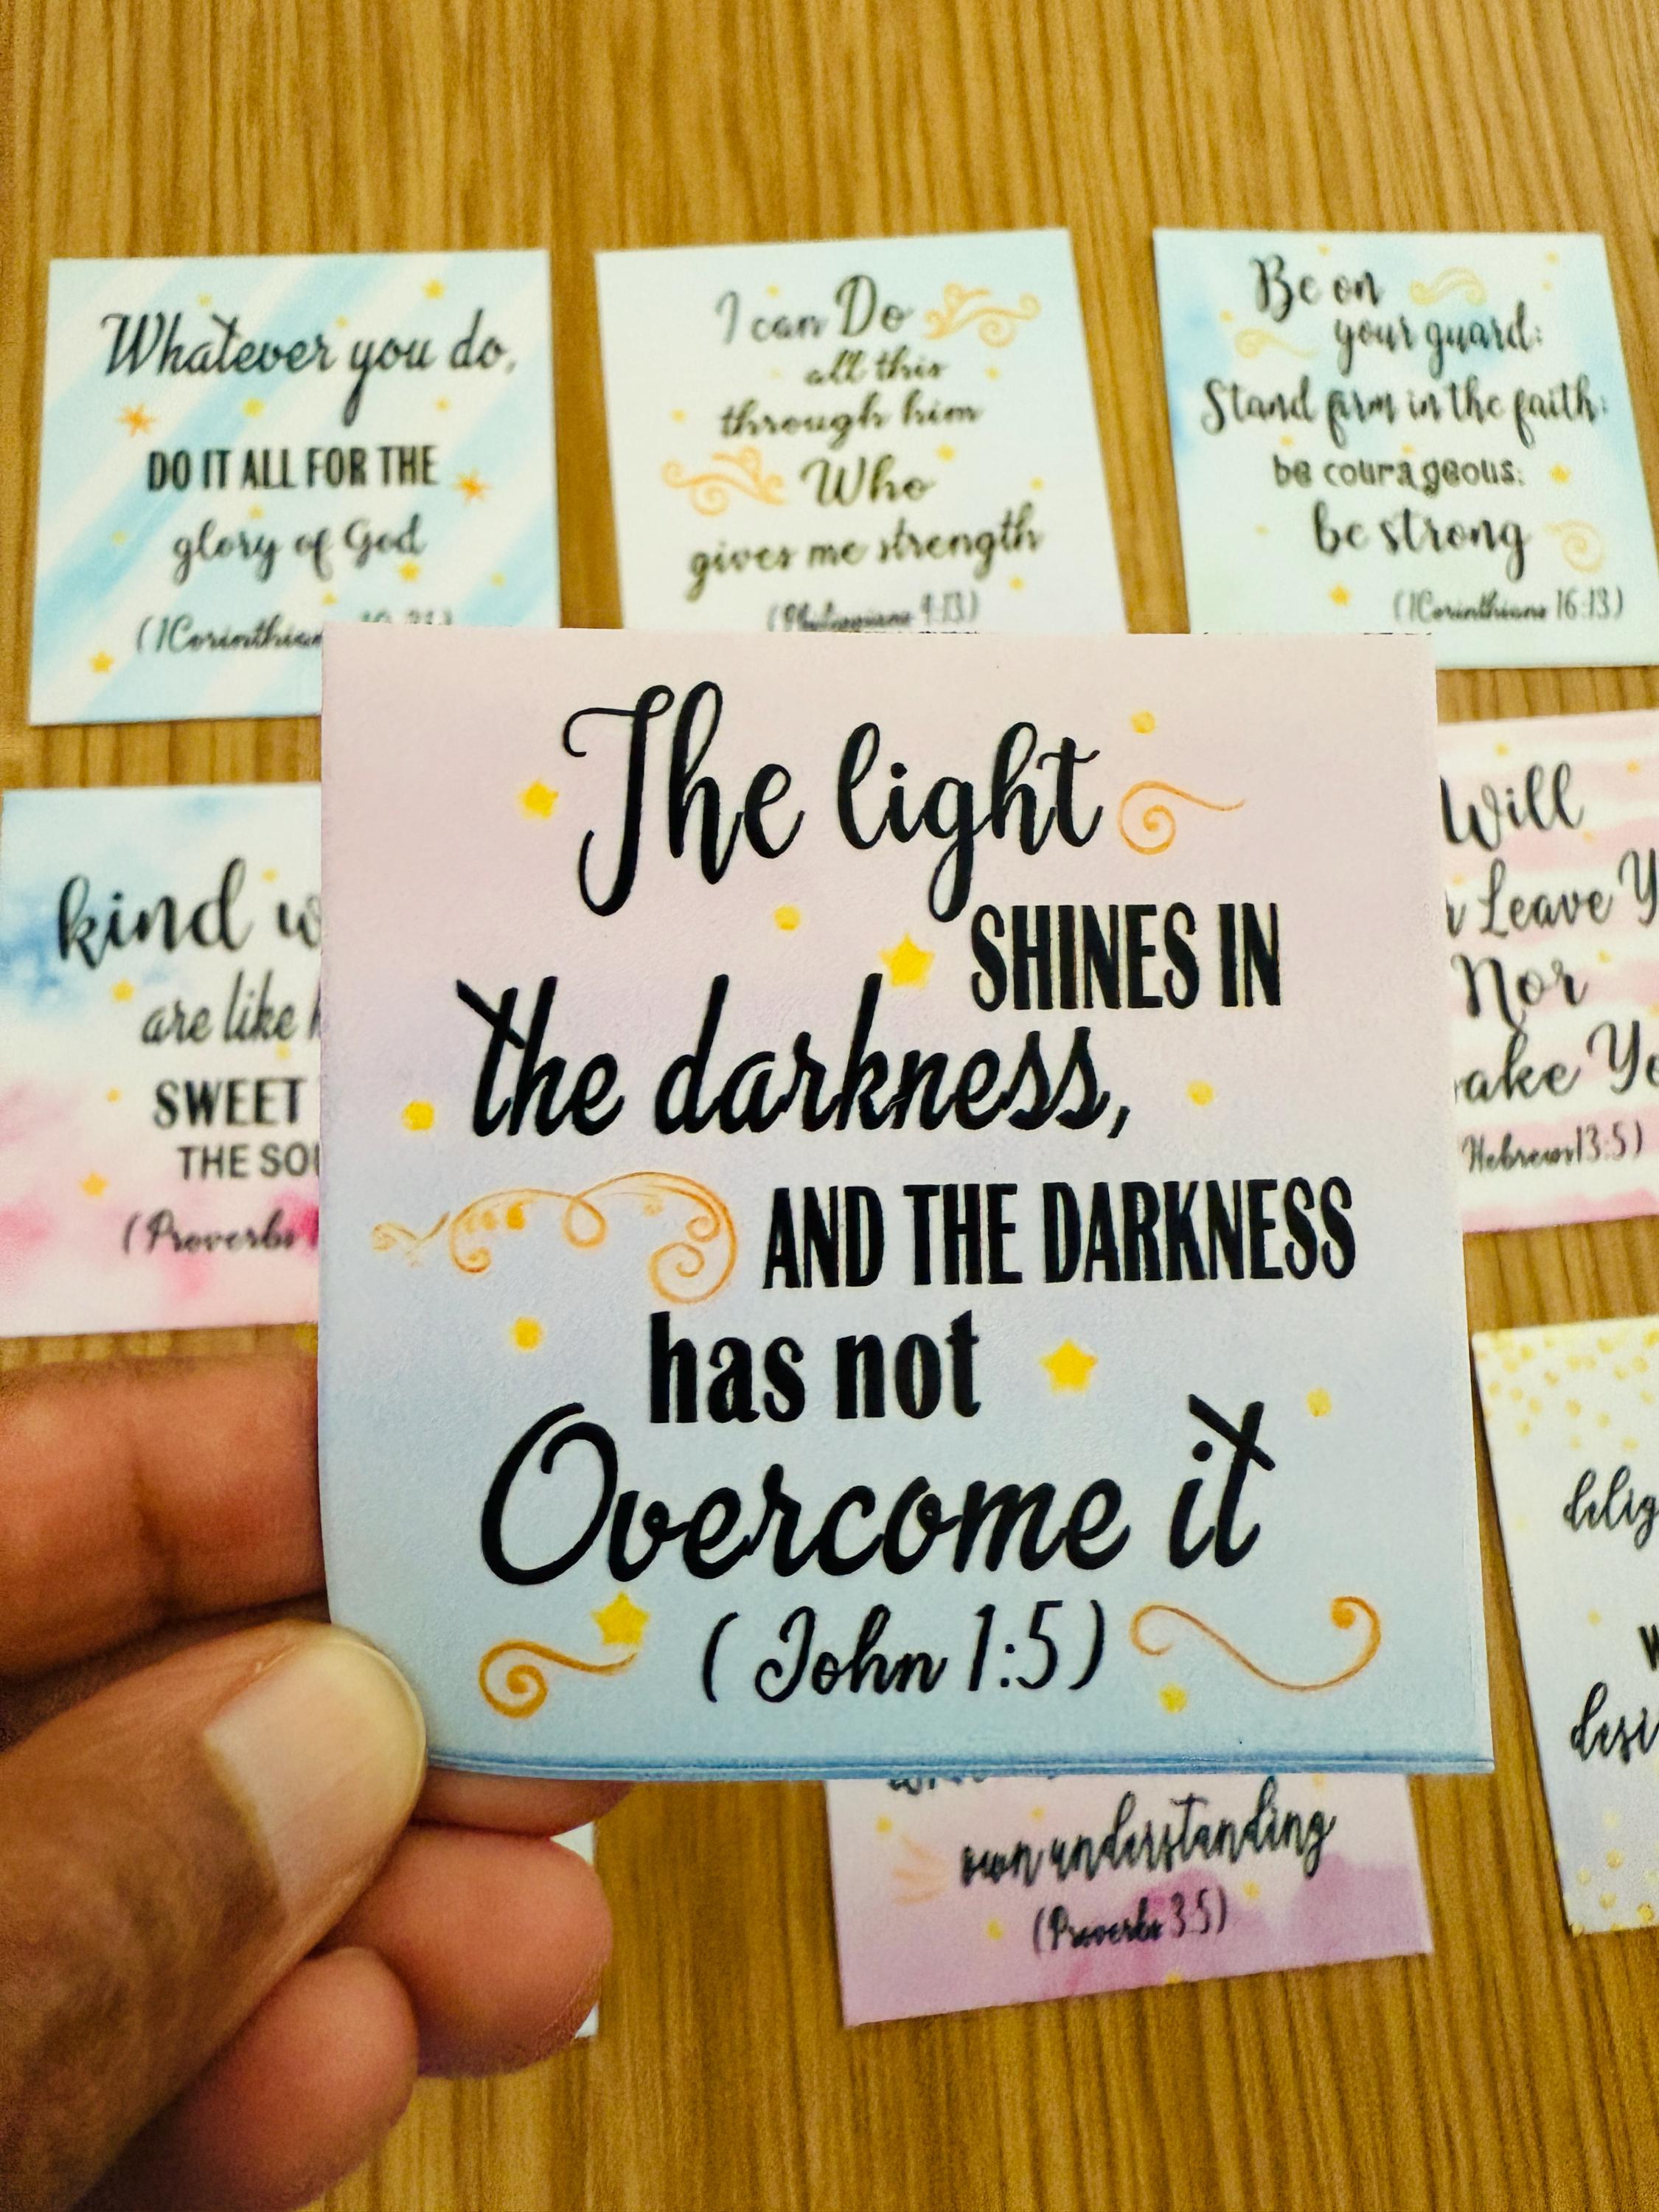 Whatever you do,
DO IT ALL FOR THE
glory of God
(1Corinthians
I can Do
all this
through him
Who
gives me strength
(Philippians 4:13)
Be on
your guard:
Stand firm in the faith:
be courageous:
be strong
(1Corinthians 16:13)
kind
are like
SWEET
THE
(Proverbs
The light
SHINES IN
the darkness,
AND THE DARKNESS
has not
Overcome it
(John 1:5)
Will
Leave
Nor
(Hebrews13:5)
own understanding
(Proverbs 3:5)